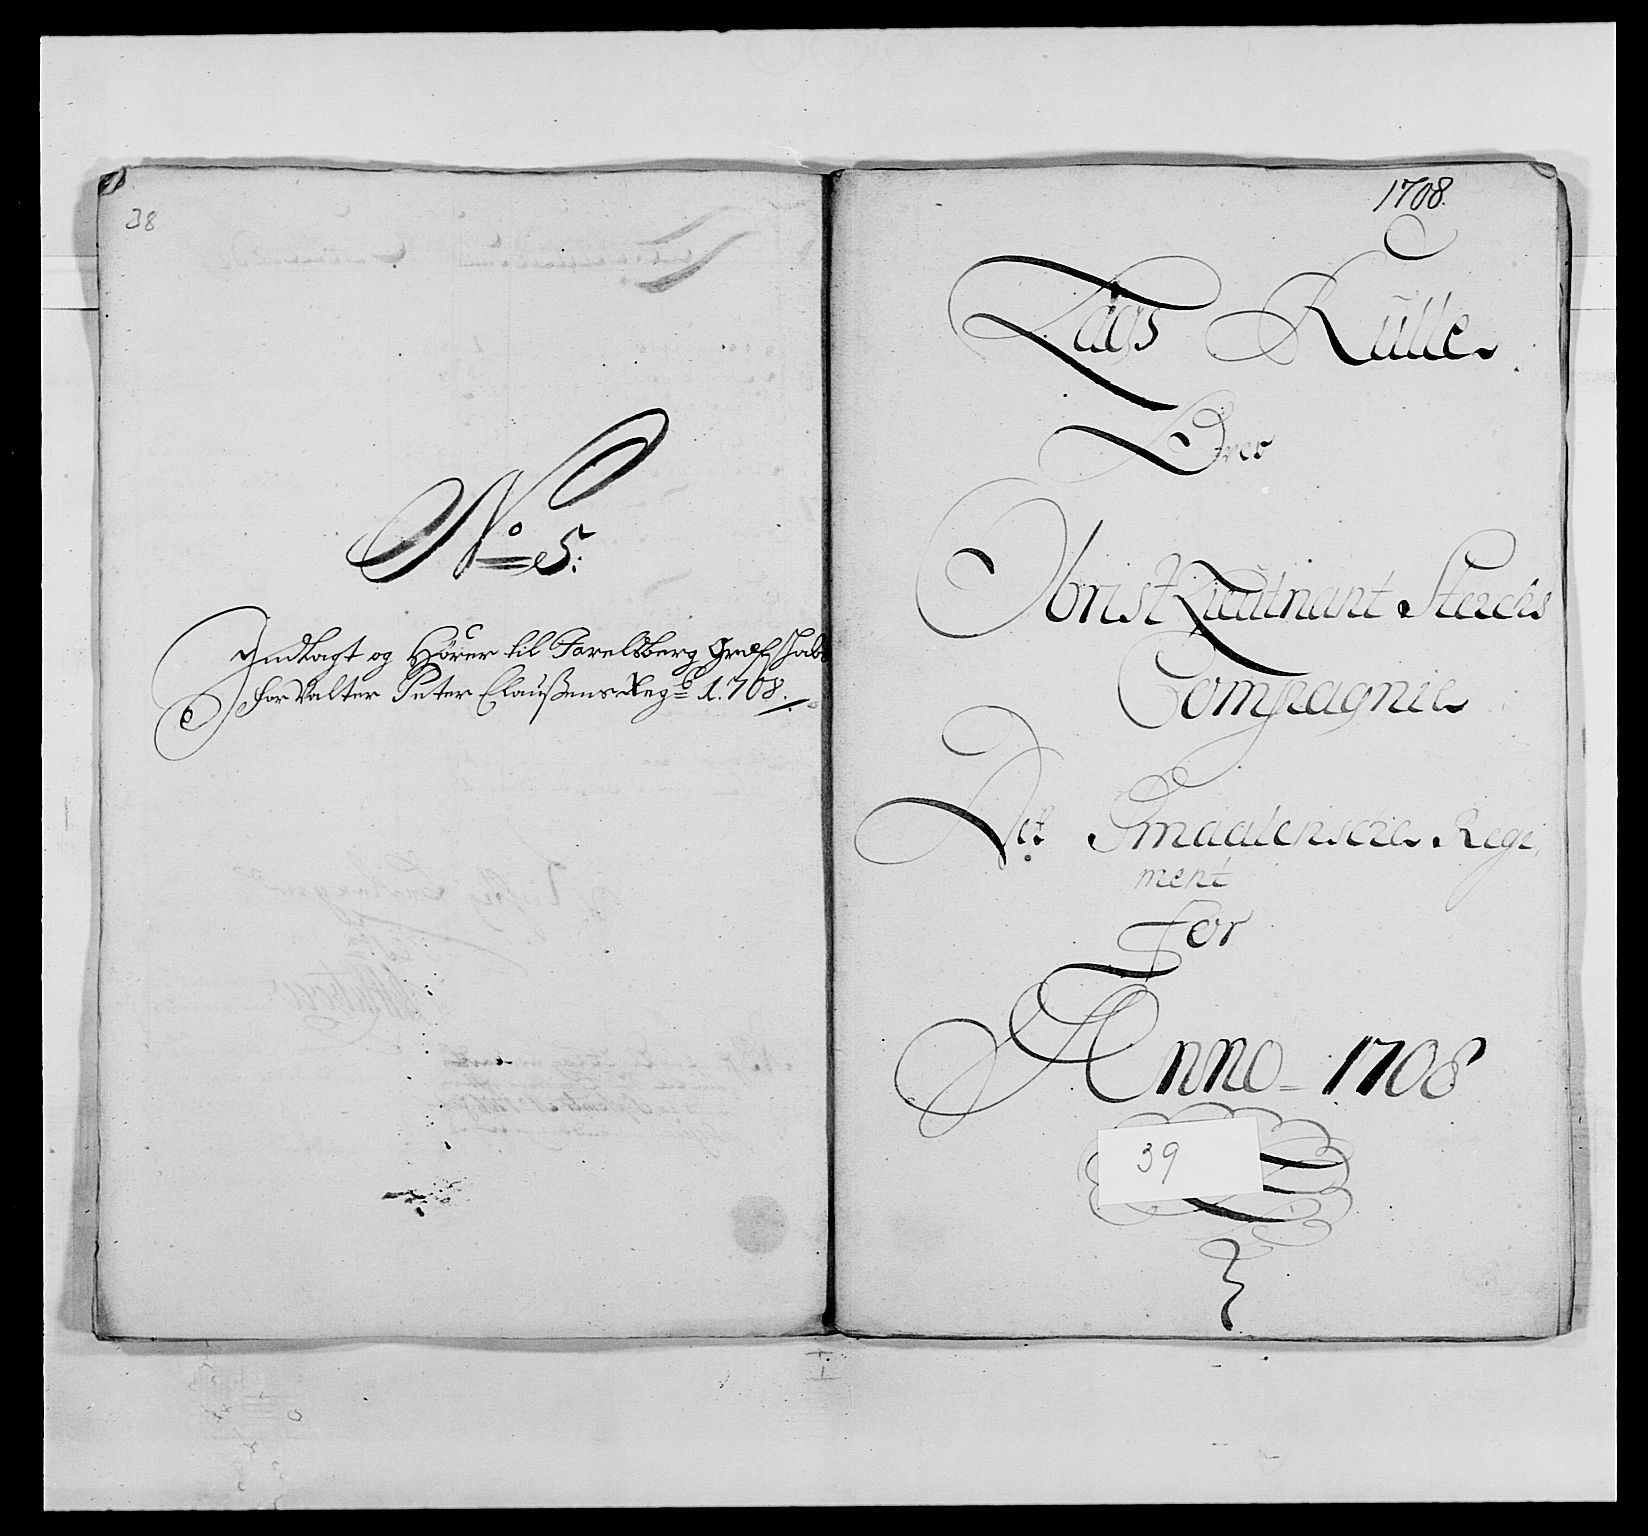 38
No 5:
Indlagt og Hörer til Jarelsberg Grefschabs
forvalter Peter Claußens Regb 1708.
1708.
Lägs Rulle
Over
Obrist Lieutnant Sterchs
Compagnie
Det Smaalenske Regi,
ment
for
Anno - 1708
39